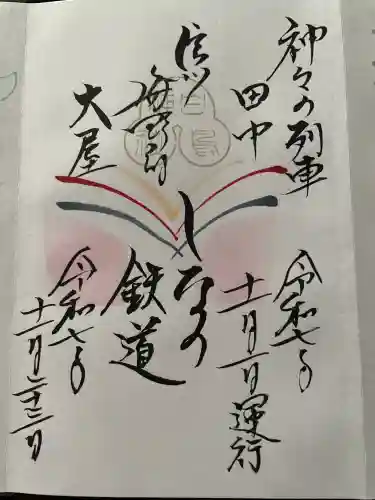 神々の列車
田中
信州
海野郷
大屋
しなの
鉄道
令和七年
十一月一日運行
令和七年
十一月二十三日